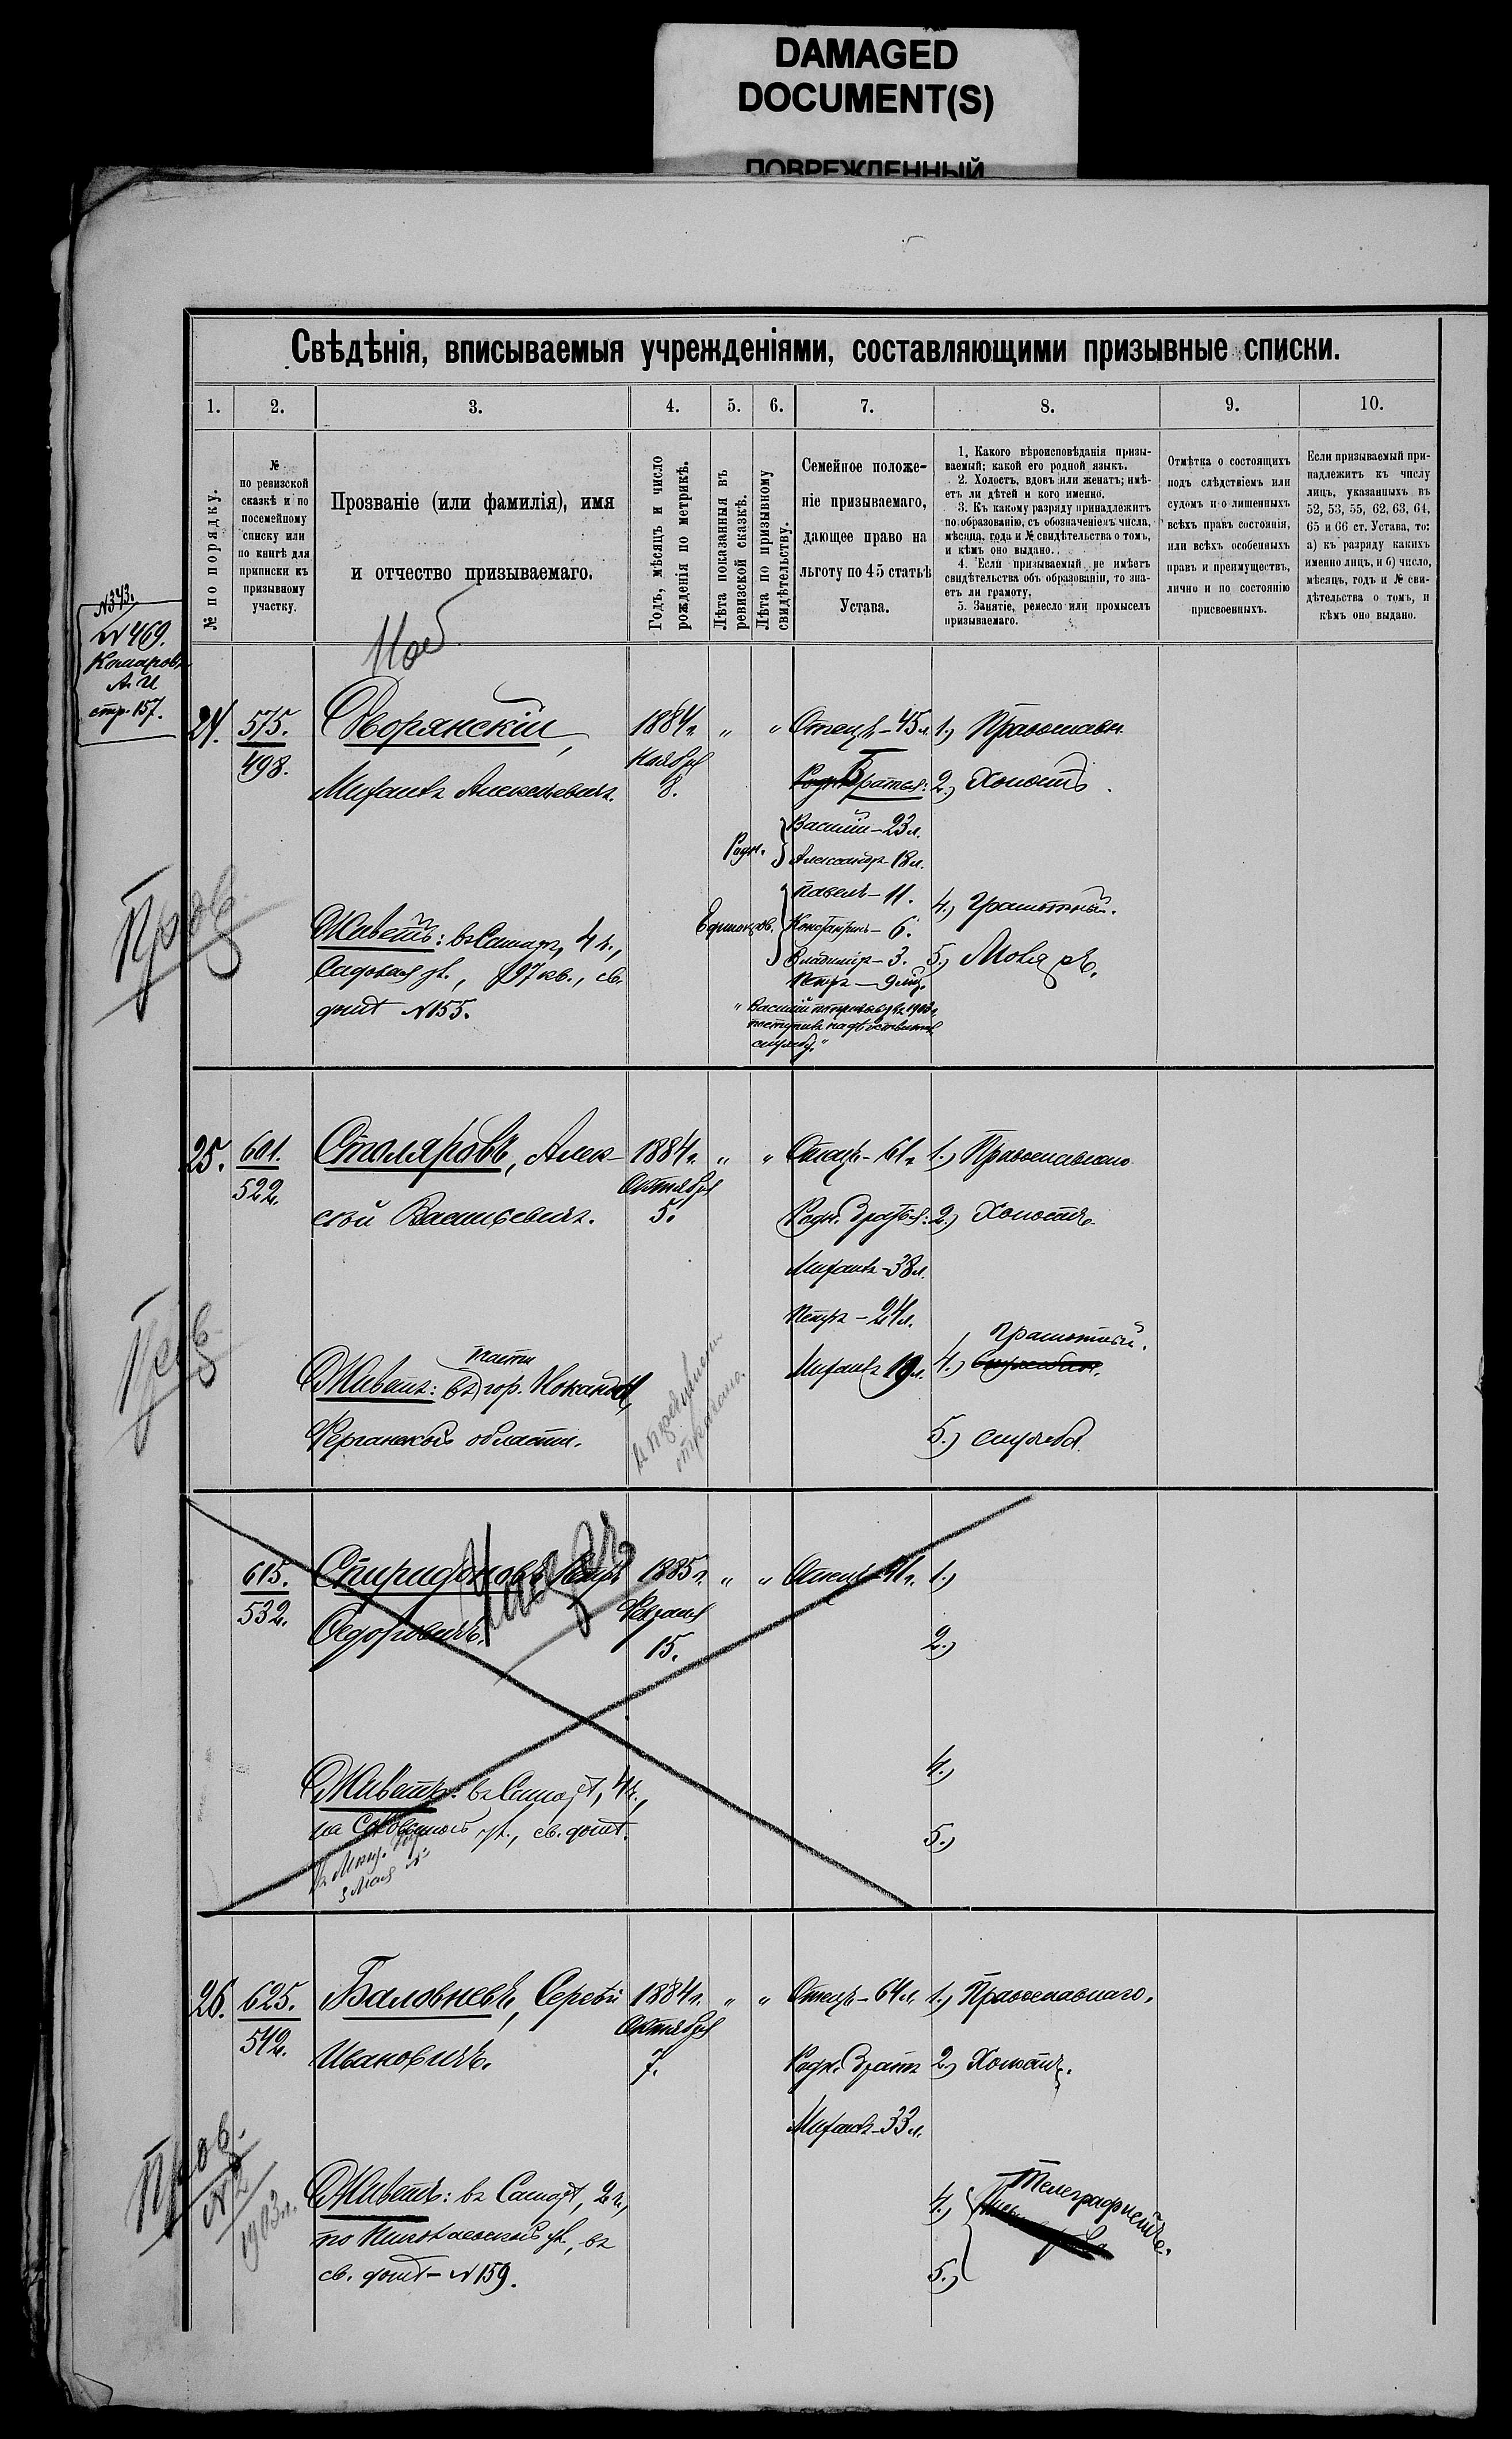 DAMAGED
DOCUMENT(S)
ПОВРЕЖДЕННЫЙ
Свѣдѣнія, вписываемыя учрежденіями, составляющими призывные списки.
1. 2. 3. 4. 5. 6. 7. 8. 9. 10.
№ по порядку.
№
по ревизской
сказкѣ и по
посемейному
списку или
по книгѣ для
приписки къ
призывному
участку.
Прозваніе (или фамилія), имя
и отчество призываемаго.
Годъ, мѣсяцъ и число
рожденія по метрикѣ.
Лѣта показанныя въ
ревизской сказкѣ.
Лѣта по призывному
свидѣтельству.
Семейное положе-
ніе призываемаго,
дающее право на
льготу по 45 статьѣ
Устава.
1. Какого вѣроисповѣданія призы-
ваемый; какой его родной языкъ.
2. Холостъ, вдовъ или женатъ; имѣ-
етъ ли дѣтей и кого именно.
3. Къ какому разряду принадлежитъ
по образованію, съ обозначеніемъ числа,
мѣсяца, года и № свидѣтельства о томъ,
и кѣмъ оно выдано.
4. Если призываемый не имѣетъ
свидѣтельства объ образованіи, то зна-
етъ ли грамоту.
5. Занятіе, ремесло или промыселъ
призываемаго.
Отмѣтка о состоящихъ
подъ слѣдствіемъ или
судомъ и о лишенныхъ
всѣхъ правъ состоянія,
или всѣхъ особенныхъ
правъ и преимуществъ,
лично и по состоянію
присвоенныхъ.
Если призываемый при-
надлежитъ къ числу
лицъ, указанныхъ въ
52, 53, 55, 62, 63, 64,
65 и 66 ст. Устава, то:
а) къ разряду какихъ
именно лицъ, и б) число,
мѣсяцъ, годъ и № сви-
дѣтельства о томъ, и
кѣмъ оно выдано.
N 373.
N 469.
Комаровъ
А. И
стр. 157.
24. 575. Дворянскій, 1884 г. " " Отецъ – 45 л. 1.) Православн.
498. Михаилъ Алексѣевичъ. Ноября 8. Родн. Братья: 2.) Холостъ.
Родн. Василій – 23 л.
Александръ 18 л.
Пров
Единокров. Павелъ – 11. 4.) Грамотный.
Живетъ: въ Самарѣ, 4 ч., Константинъ – 6.
Садовая ул., 97 кв., св. Владиміръ – 3. 5.) Маляръ.
домѣ N 155. Петръ – 9 мѣс.
"Василій по призыву 1902 г.
поступилъ на дѣйствительн.
службу."
25. 601. Столяровъ, Алек- 1884 г. " " Отецъ – 61 г. 1.) Православнаго
522. сѣй Васильевичъ. Октября 5. Родн. Братья: 2.) Холостъ.
Михаилъ – 38 л.
Петръ – 24 л.
Пров
Живетъ: въ гор. Кокандѣ, Михаилъ 19 л. 4.) Грамотный.
Ферганской области. 5.) служба
615. Спиридоновъ Петръ 1885 г. " " Отецъ 41 г. 1.)
532. Ѳедоровичъ. Февраля 15. 2.)
Живетъ: въ Самарѣ, 4 ч., 4.)
на ул., св. домѣ. 5.)
26. 625. Баловневъ, Сергѣй 1884 г. " " Отецъ – 64 л. 1.) Православнаго.
542. Ивановичъ. Октября 7. Родн. Братъ 2.) Холостъ.
Михаилъ – 33 л.
Пров.
N 2
1903 г.
Живетъ: въ Самарѣ, 2 ч., 4.) Телеграфистъ.
по Николаевской ул., въ
св. домѣ – N 159. 5.)